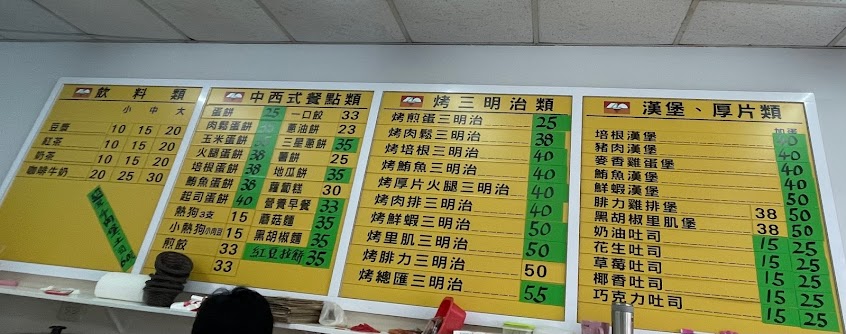 飲料類
小 中 大
豆漿 10 15 20
紅茶 10 15 20
奶茶 10 15 20
咖啡牛奶 20 25 30
中西式餐點類
蛋餅 25 一口餃 33
肉鬆蛋餅 蔥油餅 23
玉米蛋餅 三星蔥餅 35
火腿蛋餅 38 薯餅 25
培根蛋餅 38 地瓜餅 35
鮪魚蛋餅 38 蘿蔔糕 30
起司蛋餅 40 營養早餐 33
熱狗3支 15 蘑菇麵 35
小熱狗 15 黑胡椒麵 35
煎餃 33 紅豆抓餅 35
33
烤三明治類
烤煎蛋三明治 25
烤肉鬆三明治 38
烤培根三明治 40
烤鮪魚三明治 40
烤厚片火腿三明治 40
烤肉排三明治 40
烤鮮蝦三明治 50
烤里肌三明治 50
烤腓力三明治 50
烤總匯三明治 55
漢堡、厚片類
加蛋
培根漢堡 40
豬肉漢堡 40
麥香雞蛋堡 40
鮪魚漢堡 50
鮮蝦漢堡 50
腓力雞排堡 38 50
黑胡椒里肌堡 38 50
奶油吐司 15 25
花生吐司 15 25
草莓吐司 15 25
椰香吐司 15 25
巧克力吐司 15 25